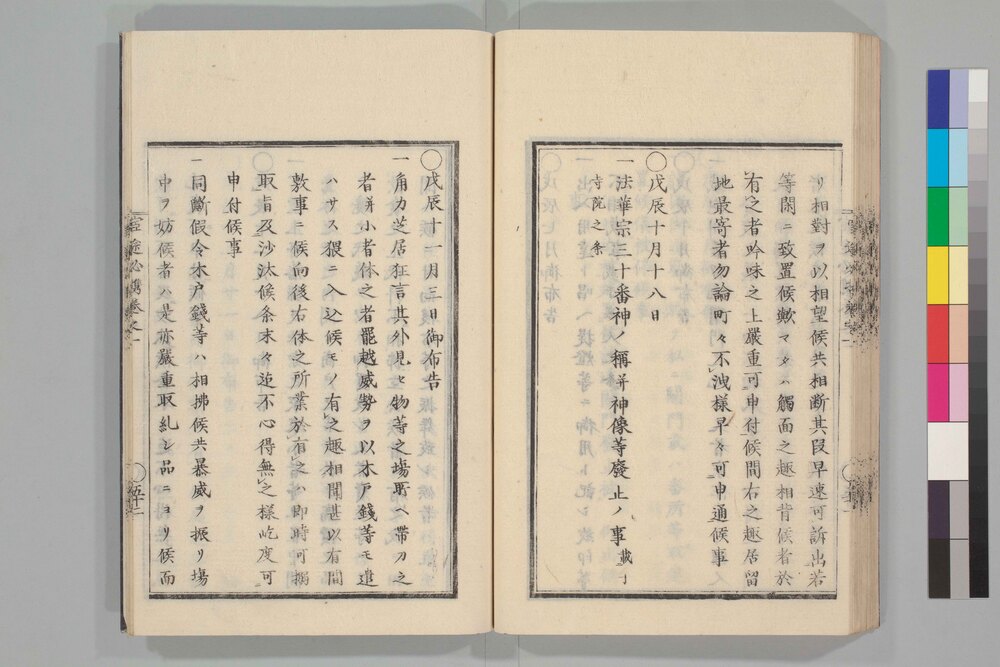 リ相對ヲ以相望候共相断其段早速可訴出若
等閑ニ致置候歟マタハ觸面之趣相背候者於
有之者吟味之上嚴重可申付候間右之趣居留
地最寄者勿論町々不洩樣早々可申通候事
〇戊辰十月十八日
一法華宗三十番神ノ稱并神像等廢止ノ事載于
寺院之条
〇戊辰十一月三日御布告
一角力芝居狂言其外見セ物等之場所ヘ帯刀之
者并小者体之者罷越威勢ヲ以木戸錢等モ遣
ハサス猥ニ入込候モノ有之趣相聞甚以有間
敷事ニ候向後右体之所業於有之ハ即時可搦
取旨及沙汰候条末々迄不心得無之樣屹度可
申付候事
一同斷假令木戸錢等ハ相拂候共暴威ヲ振リ場
中ヲ妨候者ハ是亦嚴重取糺シ品ニヨリ候而